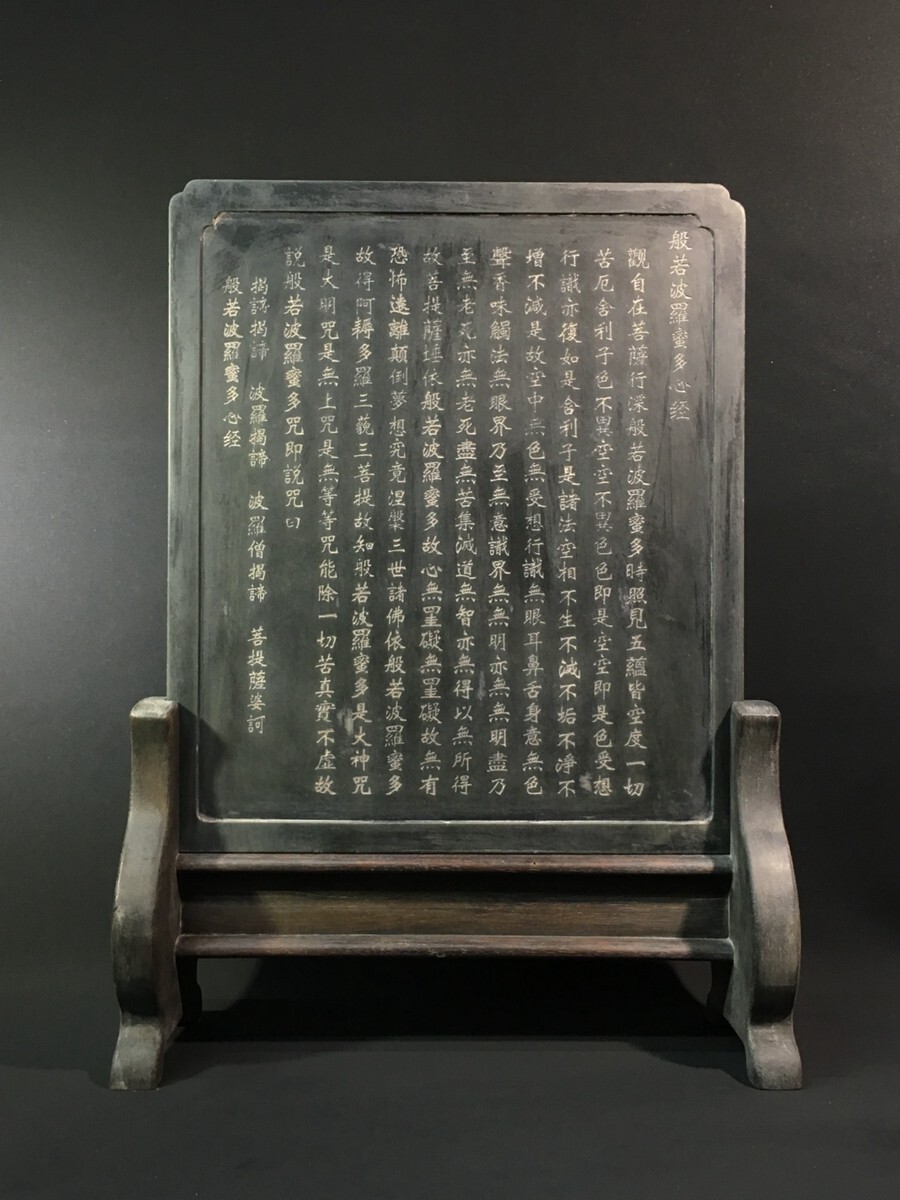 般若波羅蜜多心经
觀自在菩薩行深般若波羅蜜多時照見五蘊皆空度一切
苦厄舍利子色不異空空不異色色即是空空即是色受想
行識亦復如是舍利子是諸法空相不生不滅不垢不淨不
增不減是故空中無色無受想行識無眼耳鼻舌身意無色
聲香味觸法無眼界乃至無意識界無無明亦無無明盡乃
至無老死亦無老死盡無苦集滅道無智亦無得以無所得
故菩提薩埵依般若波羅蜜多故心無罣礙無罣礙故無有
恐怖遠離顛倒夢想究竟涅槃三世諸佛依般若波羅蜜多
故得阿耨多羅三藐三菩提故知般若波羅蜜多是大神咒
是大明咒是無上咒是無等等咒能除一切苦真實不虛故
説般若波羅蜜多咒即説咒曰
揭諦揭諦 波羅揭諦 波羅僧揭諦 菩提薩婆訶
般若波羅蜜多心经